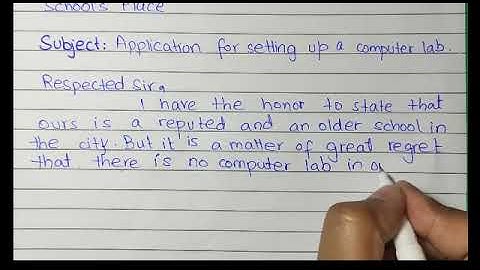 School's Place
Subject: Application for setting up a computer lab.
Respected Sir,
I have the honor to state that
ours is a reputed and an older school in
the city. But it is a matter of great regret
that there is no computer lab in o